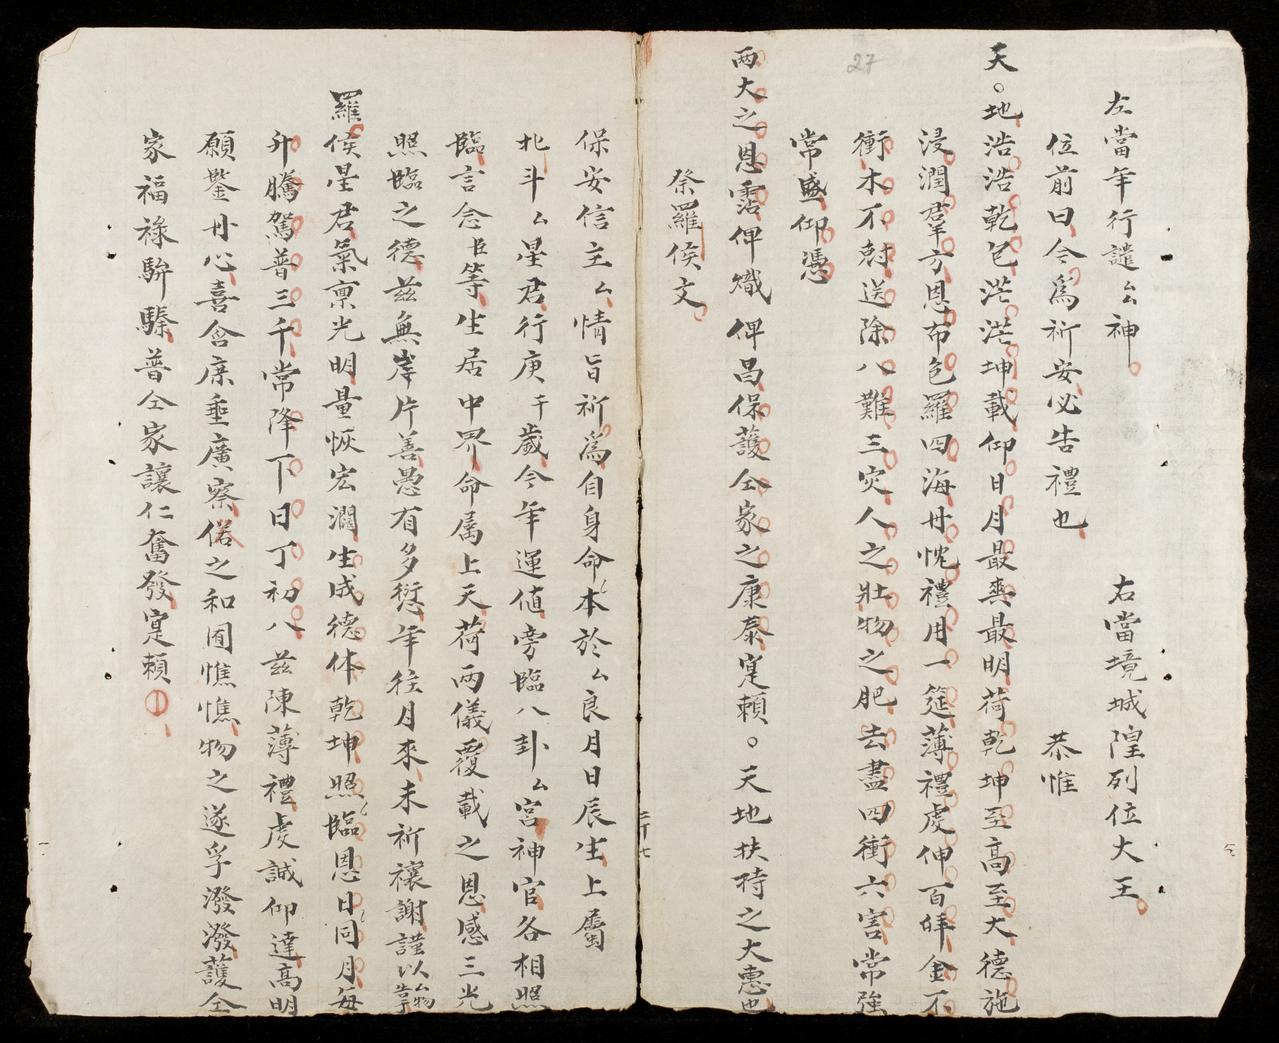 左當年行譴厶神　右當境城隍列位大王
位前曰今爲祈安必告禮也　恭惟
天。地浩浩乾包茫茫坤載仰日月最爽最明荷乾坤至高至大德施
浸潤羣方恩布色羅四海丹忱禮用一筵薄禮虔伸百拜金不
衝木不尅送除八難三灾人之壯物之肥去盡四衝六害常強
常盛仰憑
兩大之恩霑俾熾俾昌保護仝家之康泰寔賴。天地扶持之大惠也
祭羅侯文
27
保安信主厶情旨祈爲自身命本於厶良月日辰生上屬
北斗厶星君行庚千歲今年運値旁臨八卦厶宮神官各相照
臨言念臣等生居中界命属上天荷兩儀覆載之恩感三光
照臨之德兹無岸片善愚有多愆年往月來未祈禳謝謹以厶物
羅侯星君氣禀光明量恢宏濶生成德体乾坤照臨恩日同月每
升騰駕普三千常降下日丁初八兹陳薄禮虔誠仰達高明
願鑒丹心喜含庶垂廣察俾之和囿憔憔物之遂孚潑潑護仝
家福祿駢臻普仝家讓仁奮發寔賴
二十七